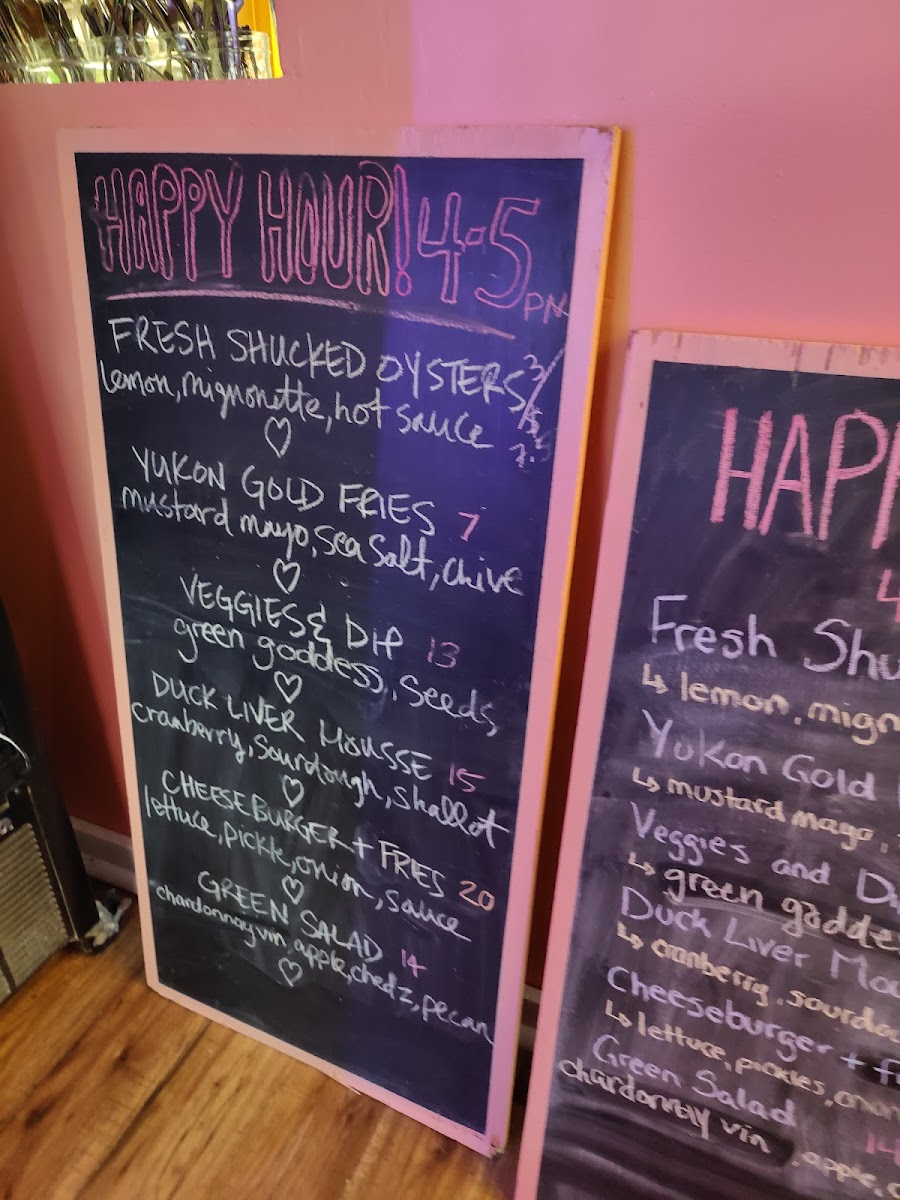 HAPPY HOUR! 4-5 PM
FRESH SHUCKED OYSTERS 3/
lemon, mignonette, hot sauce
YUKON GOLD FRIES 7
mustard mayo, sea salt, chive
VEGGIES & DIP 13
green goddess, seeds
DUCK LIVER MOUSSE 15
cranberry, sourdough, shallot
CHEESEBURGER + FRIES 20
lettuce, pickle, onion, sauce
GREEN SALAD 14
chardonnay vin, apple, chedz, pecan
HAPP
4
Fresh Shu
↳ lemon, mign
Yukon Gold
↳ mustard mayo,
Veggies and D
↳ green godde
Duck Liver Mo
↳ cranberry, sourdo
Cheeseburger + f
↳ lettuce, pickles, onion
Green Salad 14
chardonnay vin, apple, c